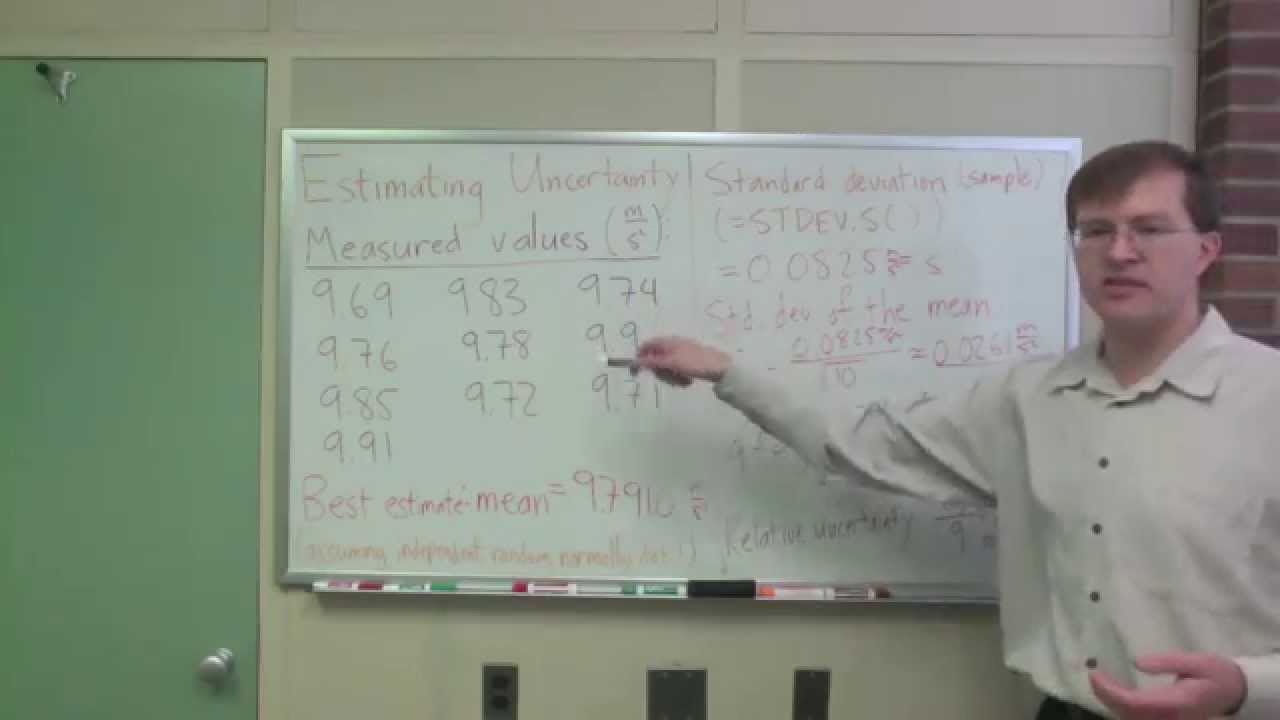 Estimating Uncertainty
Measured values (m/s²):
9.69 9.83 9.74
9.76 9.78 9.9
9.85 9.72 9.71
9.91
Best estimate-mean = 9.791 m/s²
(assuming independent, random, normally dist.!)
Standard deviation (sample)
(=STDEV.S( ))
= 0.0825 m/s² = s
Std. dev of the mean
= 0.0825 m/s² / √10 ≈ 0.0261 m/s²
Relative uncertainty